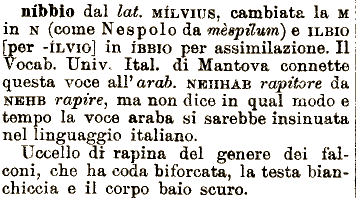 níbbio dal lat. MÍLVIUS, cambiata la M
in N (come Nespolo da mèspilum) e ILBIO
[per -ÍLVIO] in ÍBBIO per assimilazione. Il
Vocab. Univ. Ital. di Mantova connette
questa voce all'arab. NEHHAB rapitore da
NEHB rapire, ma non dice in qual modo e
tempo la voce araba si sarebbe insinuata
nel linguaggio italiano.
Uccello di rapina del genere dei fal-
coni, che ha coda biforcata, la testa bian-
chiccia e il corpo baio scuro.